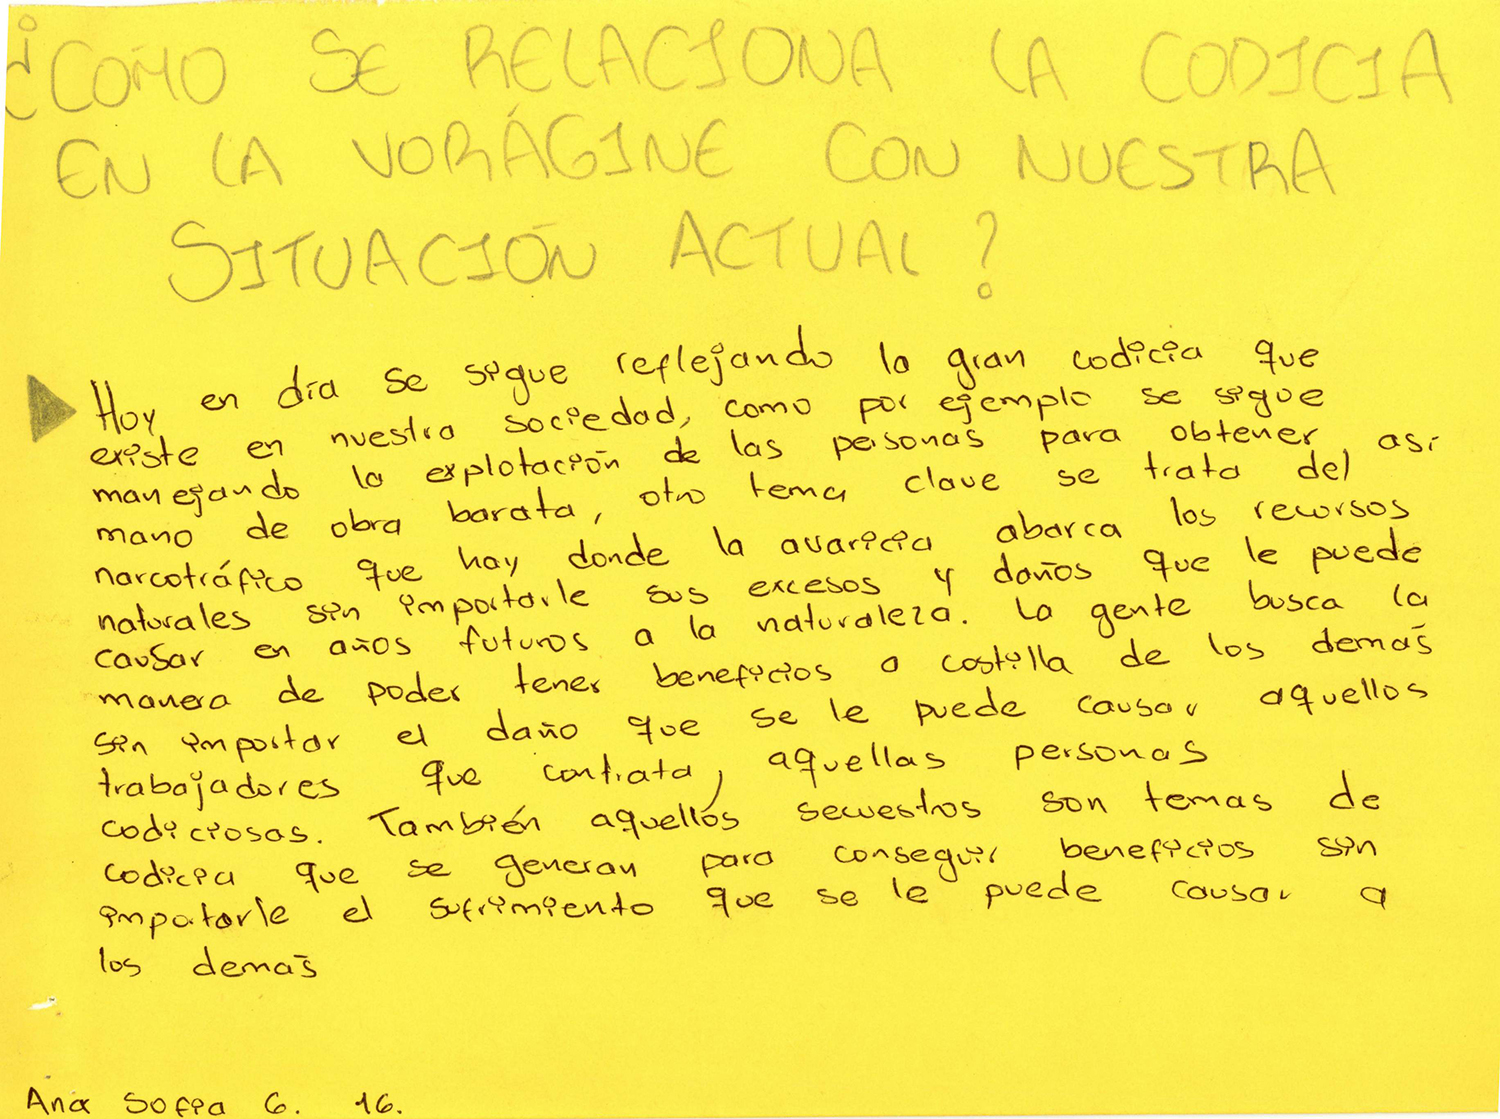 ¿COMO SE RELACIONA LA CODICIA
EN LA VORÁGINE CON NUESTRA
SITUACIÓN ACTUAL?
Hoy en día se sigue reflejando la gran codicia que
existe en nuestra sociedad, como por ejemplo se sigue
manejando la explotación de las personas para obtener así
mano de obra barata, otro tema clave se trata del
narcotráfico que hay donde la avaricia abarca los recursos
naturales sin importarle sus excesos y daños que le puede
causar en años futuros a la naturaleza. La gente busca la
manera de poder tener beneficios a costilla de los demás
sin importar el daño que se le puede causar aquellos
trabajadores que contrata, aquellas personas
codiciosas. También aquellos secuestros son temas de
codicia que se generan para conseguir beneficios sin
importarle el sufrimiento que se le puede causar a
los demás
Ana Sofia G. 16.